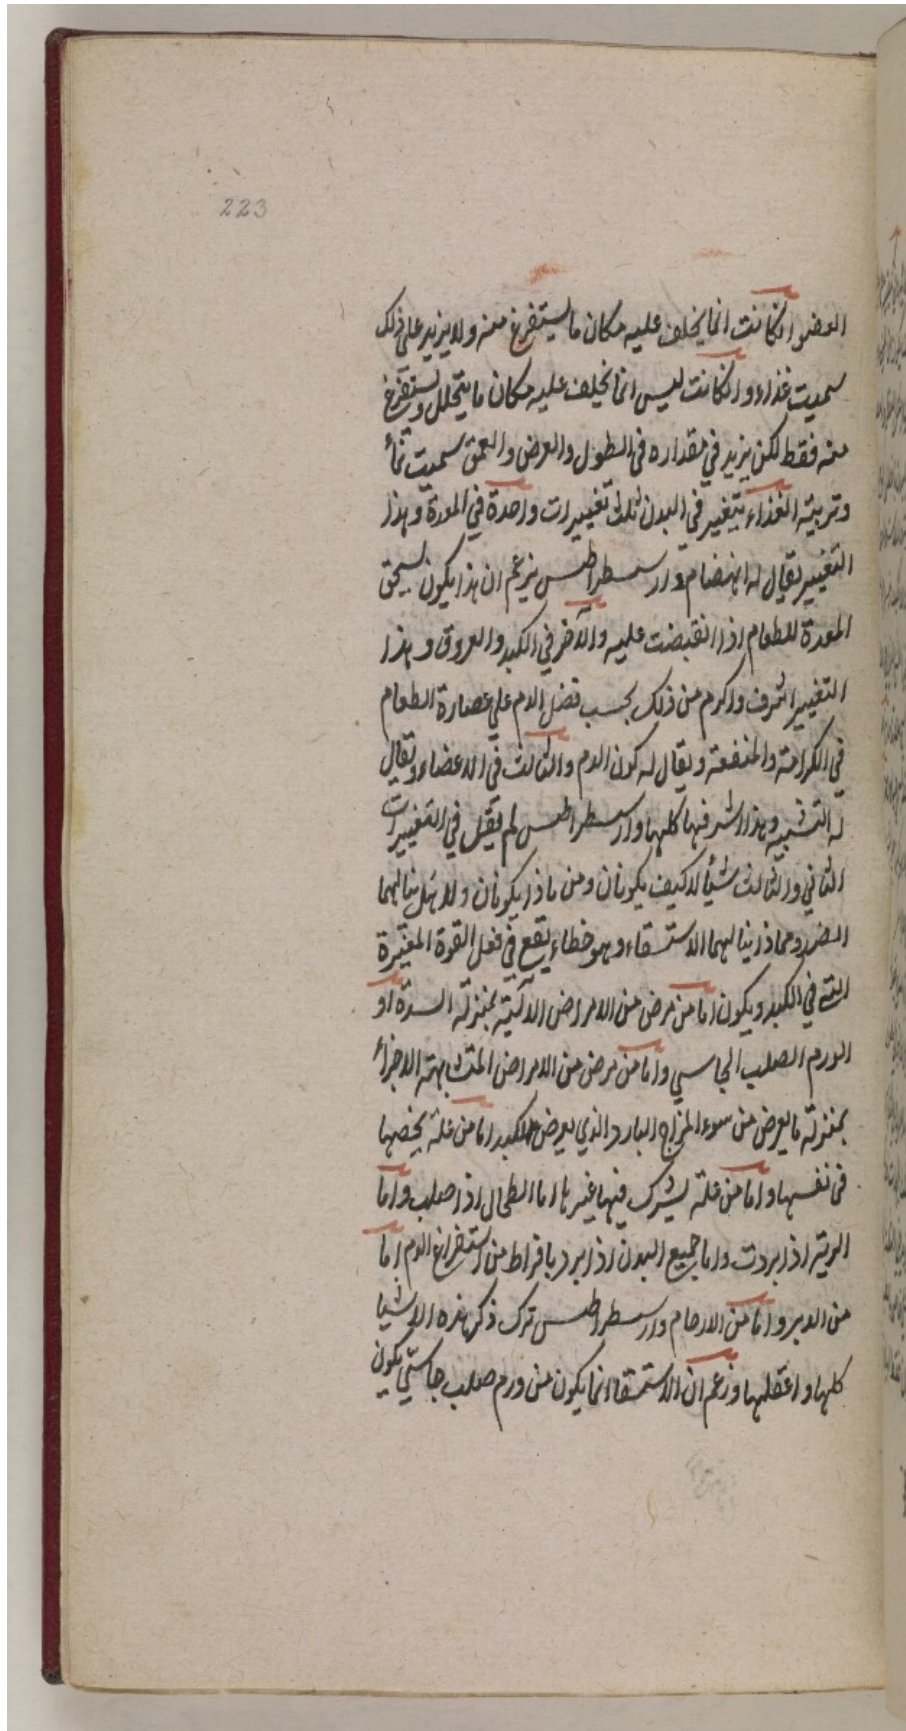 223
العضو ان كانت انما يخلف عليه مكان ما يستفرغ منه ولا يزيد على ذلك
سميت غذاء وان كانت ليس انما يخلف عليه مكان ما يتحلل ويستفرغ
منه فقط لكن يزيد في مقداره في الطول والعرض والعمق سميت نمأ
وتربيته الغذاء يتغير في البدن ثلث تغييرات واحدة في المعدة وهذا
التغيير يقال له انهضام وارسسطراطس يزعم ان هذا يكون بسحق
المعدة للطعام اذا انقبضت عليه والآخر في الكبد والعروق وهذا
التغيير اشرف واكرم من ذلك بحسب فضل الدم على عصارة الطعام
في الكرامة والمنفعة ويقال له كون الدم والثالث في الاعضاء ويقال
له التشبيه وهذا اشرفها كلها وارسسطراطس لم يقل في التغييرات
الثاني والثالث شيأ لا كيف يكونان ومن ماذا يكونان ولا هل ينالهما
الضرر ومماذا ينالهما الاستسقاء وهو خطاء يقع في فعل القوة المغيّرة
التي في الكبد ويكون اما من مرض من الامراض الآلية بمنزلة السدّة او
الورم الصلب الجاسي واما من مرض من الامراض المتشابهة الاجزأ
بمنزلة ما يعرض من سوء المزاج البارد الذي يعرض للكبد اما من علة يخصها
في نفسها واما من علة يشرك فيها غيرها اما الطحال اذا صلب واما
الرية اذا بردت واما جميع البدن اذا برد بافراط من استفراغ الدم اما
من الدبر واما من الارحام وارسسطراطس ترك ذكر هذه الاشيا
كلها واغفلها وزعم ان الاستسقا انما يكون من ورم صلب جاسي يكون